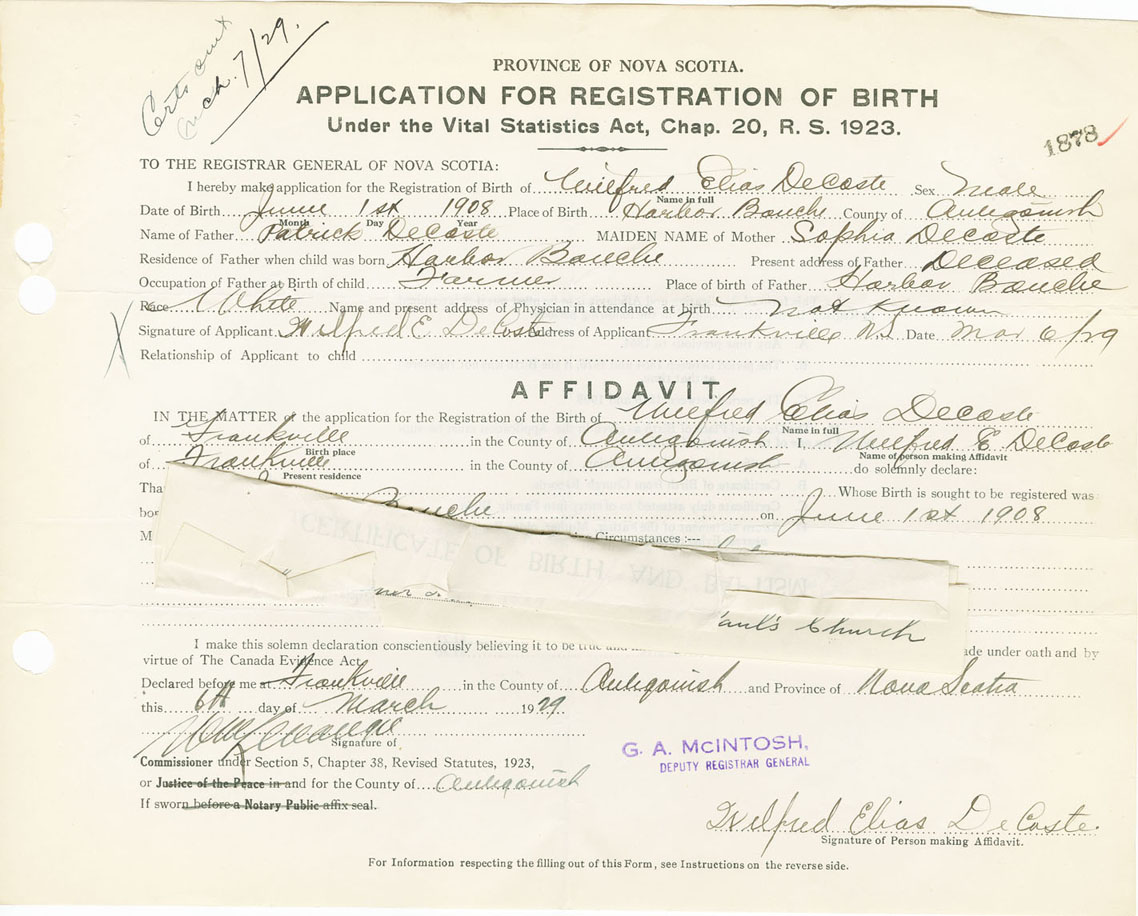 Certs out
Mch. 7/29.
PROVINCE OF NOVA SCOTIA.
APPLICATION FOR REGISTRATION OF BIRTH
Under the Vital Statistics Act, Chap. 20, R. S. 1923.
1878
TO THE REGISTRAR GENERAL OF NOVA SCOTIA:
I hereby make application for the Registration of Birth of Wilfred Elias DeCoste Sex Male
Name in full
Date of Birth June 1st 1908 Place of Birth Harbor Bouche County of Antigonish
Month Day Year
Name of Father Patrick DeCoste MAIDEN NAME of Mother Sophia Decoste
Residence of Father when child was born Harbor Bouche Present address of Father Deceased
Occupation of Father at Birth of child Farmer Place of birth of Father Harbor Bouche
Race White Name and present address of Physician in attendance at birth Not Known
X Signature of Applicant Wilfred E DeCoste Address of Applicant Frankville N.S. Date Mar 6/29
Relationship of Applicant to child
AFFIDAVIT
IN THE MATTER of the application for the Registration of the Birth of Wilfred Elias Decoste
Name in full
of Frankville in the County of Antigonish I, Wilfred E DeCoste
Birth place Name of person making Affidavit
of Frankville in the County of Antigonish do solemnly declare:
Present residence
Tha Whose Birth is sought to be registered was
bor Bouche on June 1st 1908
M Circumstances :---
CERTIFICATE OF BIRTH AND BAPTISM
aul's Church
I make this solemn declaration conscientiously believing it to be true and ade under oath and by
virtue of The Canada Evidence Act.
Declared before me at Frankville in the County of Antigonish and Province of Nova Scotia
this 6th day of March 1929
Signature of
Commissioner under Section 5, Chapter 38, Revised Statutes, 1923,
or Justice of the Peace in and for the County of Antigonish
If sworn before a Notary Public affix seal.
G. A. McINTOSH,
DEPUTY REGISTRAR GENERAL
Wilfred Elias DeCoste.
Signature of Person making Affidavit.
For Information respecting the filling out of this Form, see Instructions on the reverse side.